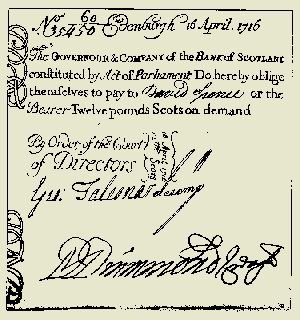 No 60/35450 Edenburgh 16 April. 1716
The GOVERNOUR & COMPANY of the BANK of SCOTLAND
constituted by Act of Parliament Do hereby oblige
themselves to pay to David Spence or the
Bearer Twelve pounds Scots on demand
By Order of the Court
of Directors
Geo:
Drummond